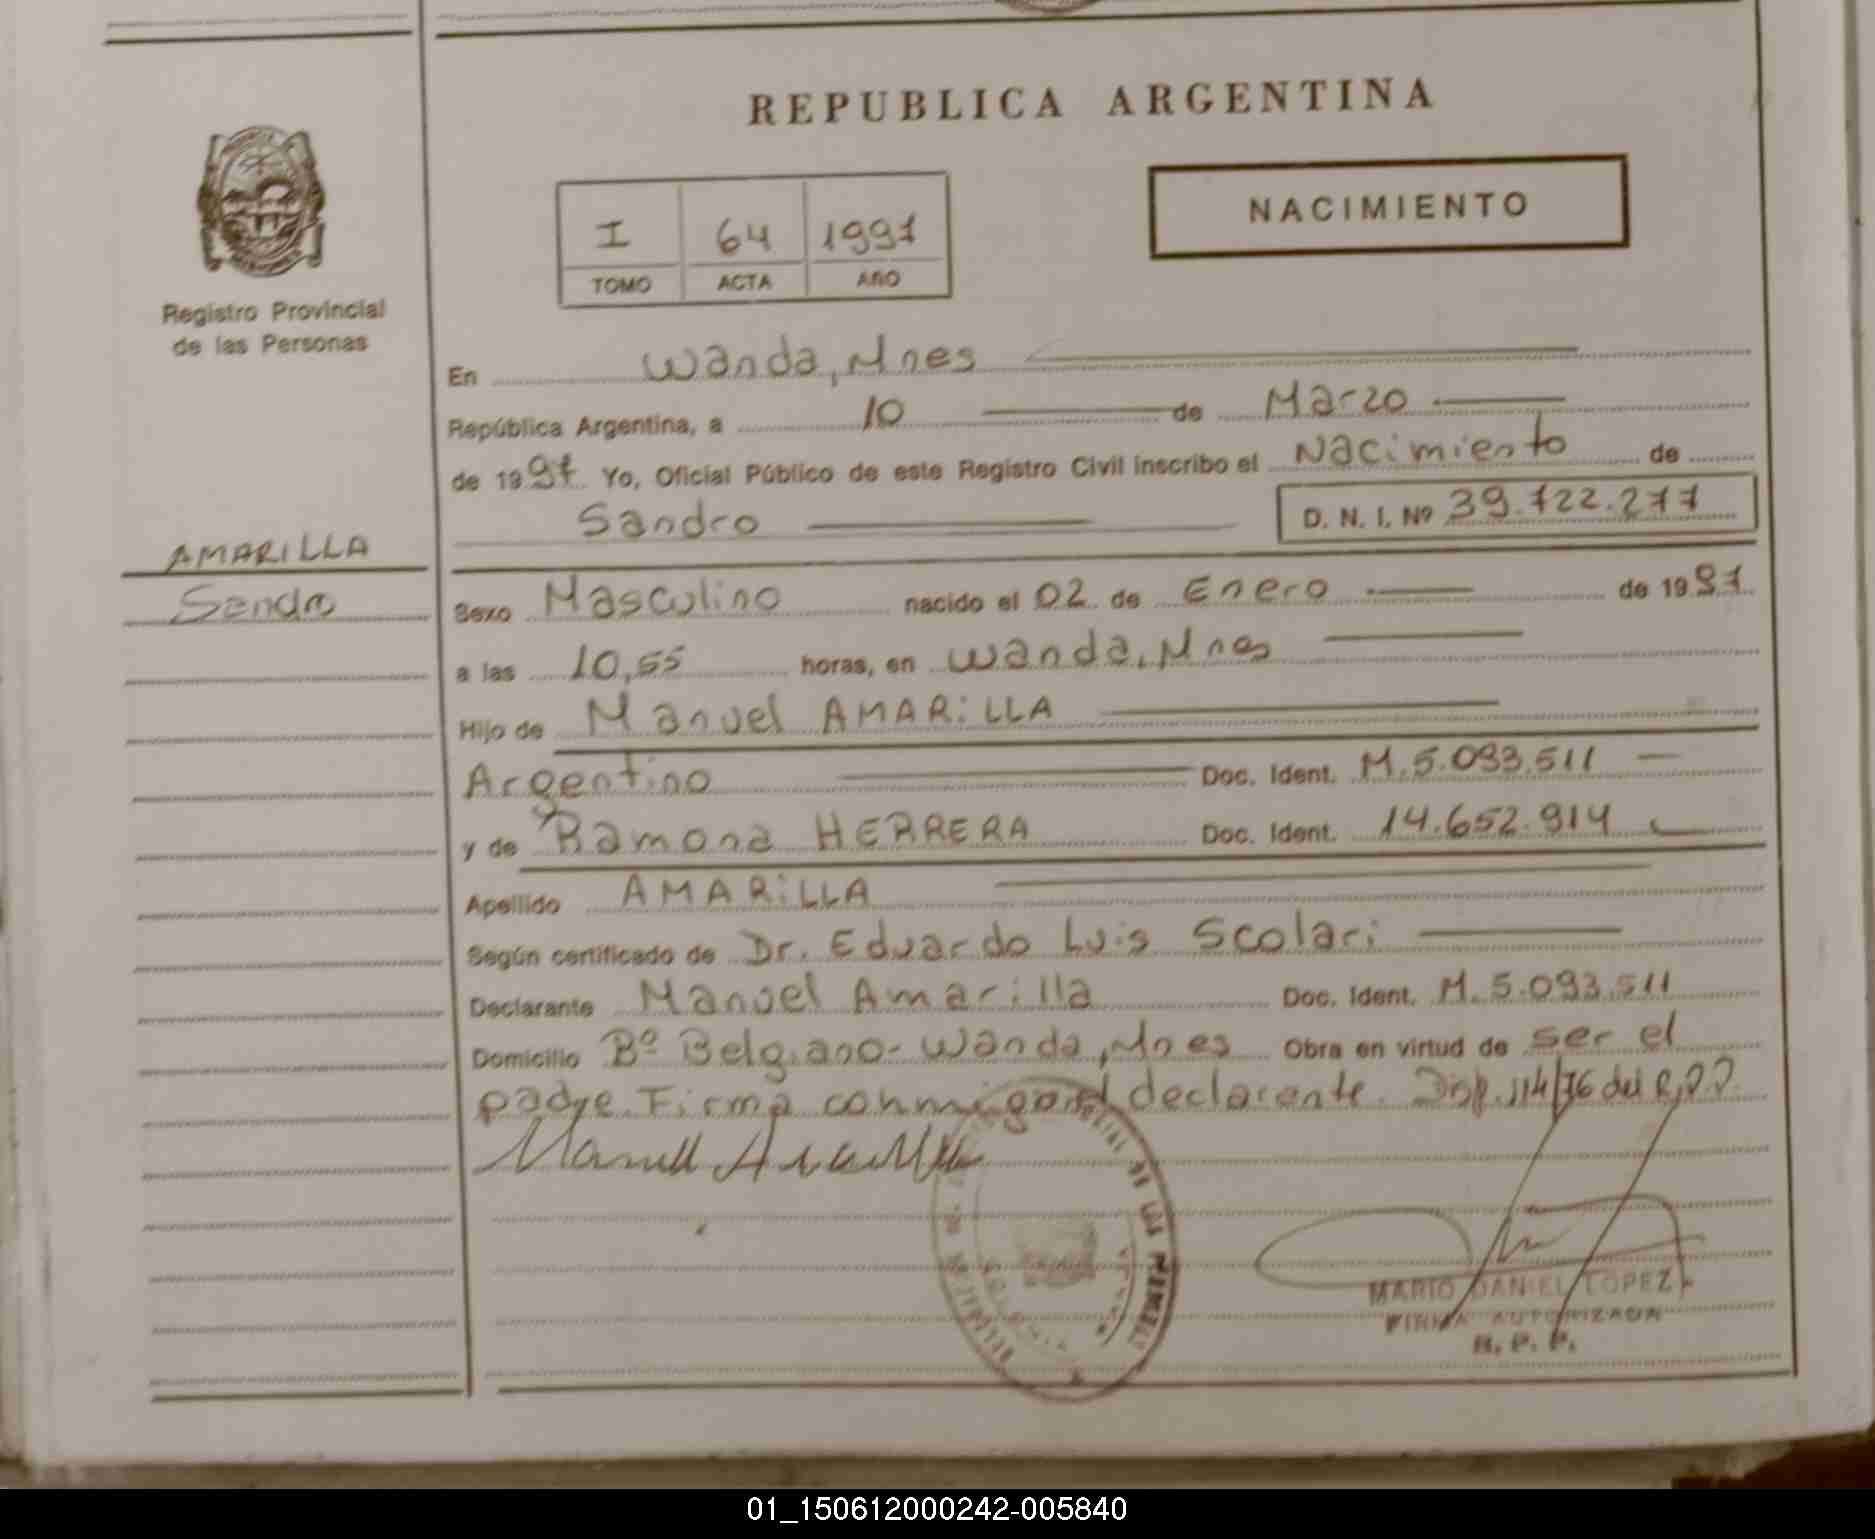 REPUBLICA ARGENTINA
NACIMIENTO
I 64 1997
TOMO ACTA AÑO
Registro Provincial
de las Personas
En Wanda, Mnes
República Argentina, a 10 de Marzo
de 1997 Yo, Oficial Público de este Registro Civil inscribo el Nacimiento de
Sandro D. N. I. Nº 39.722.277
AMARILLA
Sandro
Sexo Masculino nacido el 02 de Enero de 1997
a las 10,55 horas, en Wanda, Mnes
Hijo de Manuel AMARiLLA
Argentino Doc. Ident. M. 5.093.511
y de Ramona HERRERA Doc. Ident. 14.652.914
Apellido AMARiLLA
Según certificado de Dr. Eduardo Luis Scolari
Declarante Manuel Amarilla Doc. Ident. M. 5.093.511
Domicilio Bº Belgrano - Wanda, Mnes Obra en virtud de ser el
padre. Firma conmigo el declarante. Disp. 114/76 del R.P.P.
MARIO DANIEL LOPEZ
FIRMA AUTORIZADA
R. P. P.
01_150612000242-005840